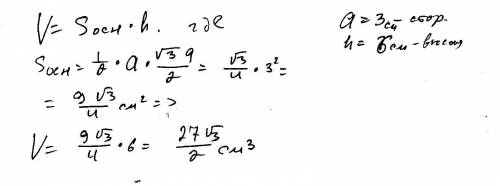 V = Sосн · h. где
a = 3см стор.
h = 6см - высота
Sосн = 1/2 · a · √3 a/2 = √3/4 · 3² =
= 9√3/4 см² =>
V = 9√3/4 · 6 = 27√3/2 см³